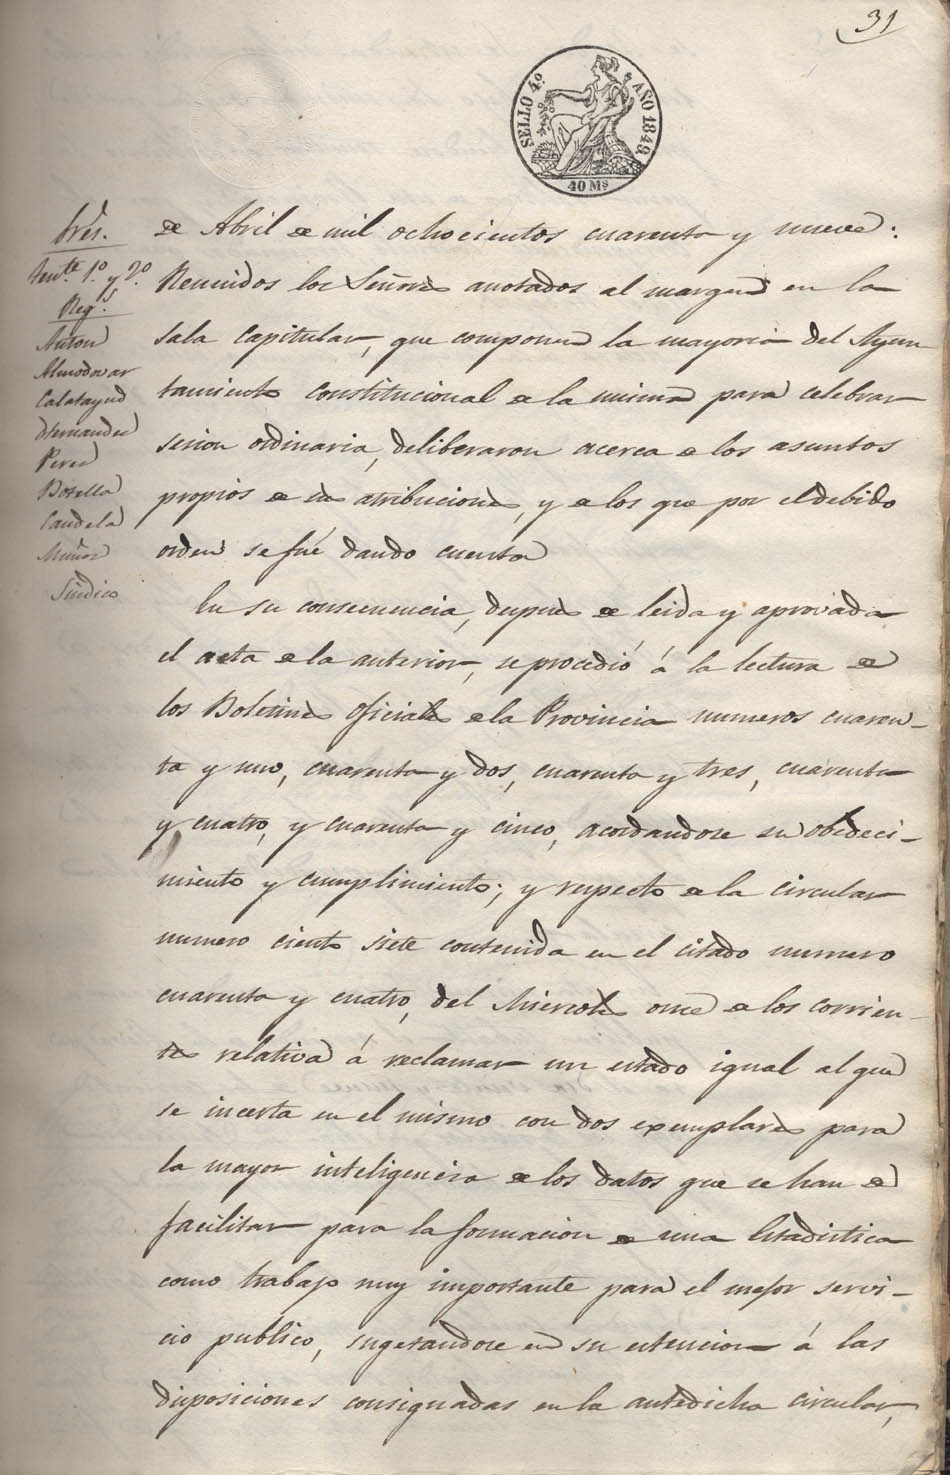 31
SELLO 4º. AÑO 1849.
40 Ms
Sres.
Tente. 1º. y 2º.
Regs.
Anton
Almodovar
Calatayud
Hernandez
Perez
Botella
Candela
Muñoz
Sindico
de Abril de mil ochocientos cuarenta y nueve:
Reunidos los Señores anotados al margen en la
sala capitular, que componen la mayoria del Ayun
tamiento constitucional de la misma para celebrar
sesion ordinaria, deliberaron acerca de los asuntos
propios de sus atribuciones, y de los que por el debido
orden se fué dando cuenta
En su consecuencia, despues de leida y aprovada
el acta de la anterior, se procedió á la lectura de
los Boletines oficiales de la Provincia numeros cuaren-
ta y uno, cuarenta y dos, cuarenta y tres, cuarenta
y cuatro, y cuarenta y cinco, acordandose su obedeci-
miento y cumplimiento; y respecto de la circular
numero ciento siete contenida en el citado numero
cuarenta y cuatro, del Miercoles once de los corrien-
tes relativa á reclamar un estado igual al que
se incerta en el mismo con dos exemplares para
la mayor inteligencia de los datos que se han de
facilitar para la formacion de una Estadistica
como trabajo muy importante para el mejor servi-
cio publico, sugetandose en su estencion á las
disposiciones consignadas en la antedicha circular,